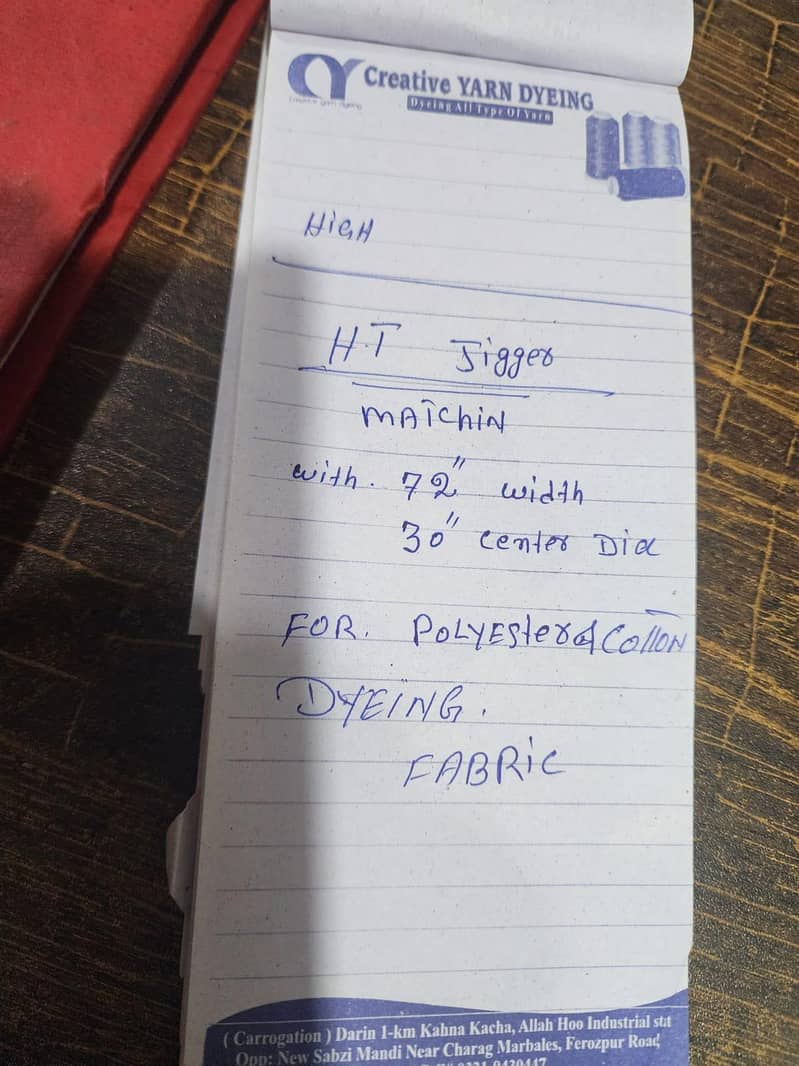 Creative YARN DYEING
Dyeing All Type Of Yarn
Creative yarn dyeing
HiGH
H.T Jigger
MATChiN
with. 72" width
30" Center Dia
FOR. POLYEster & COTTON
DYEING.
FABRiC
( Carrogation ) Darin 1-km Kahna Kacha, Allah Hoo Industrial stat
Opp: New Sabzi Mandi Near Charag Marbales, Ferozpur Road